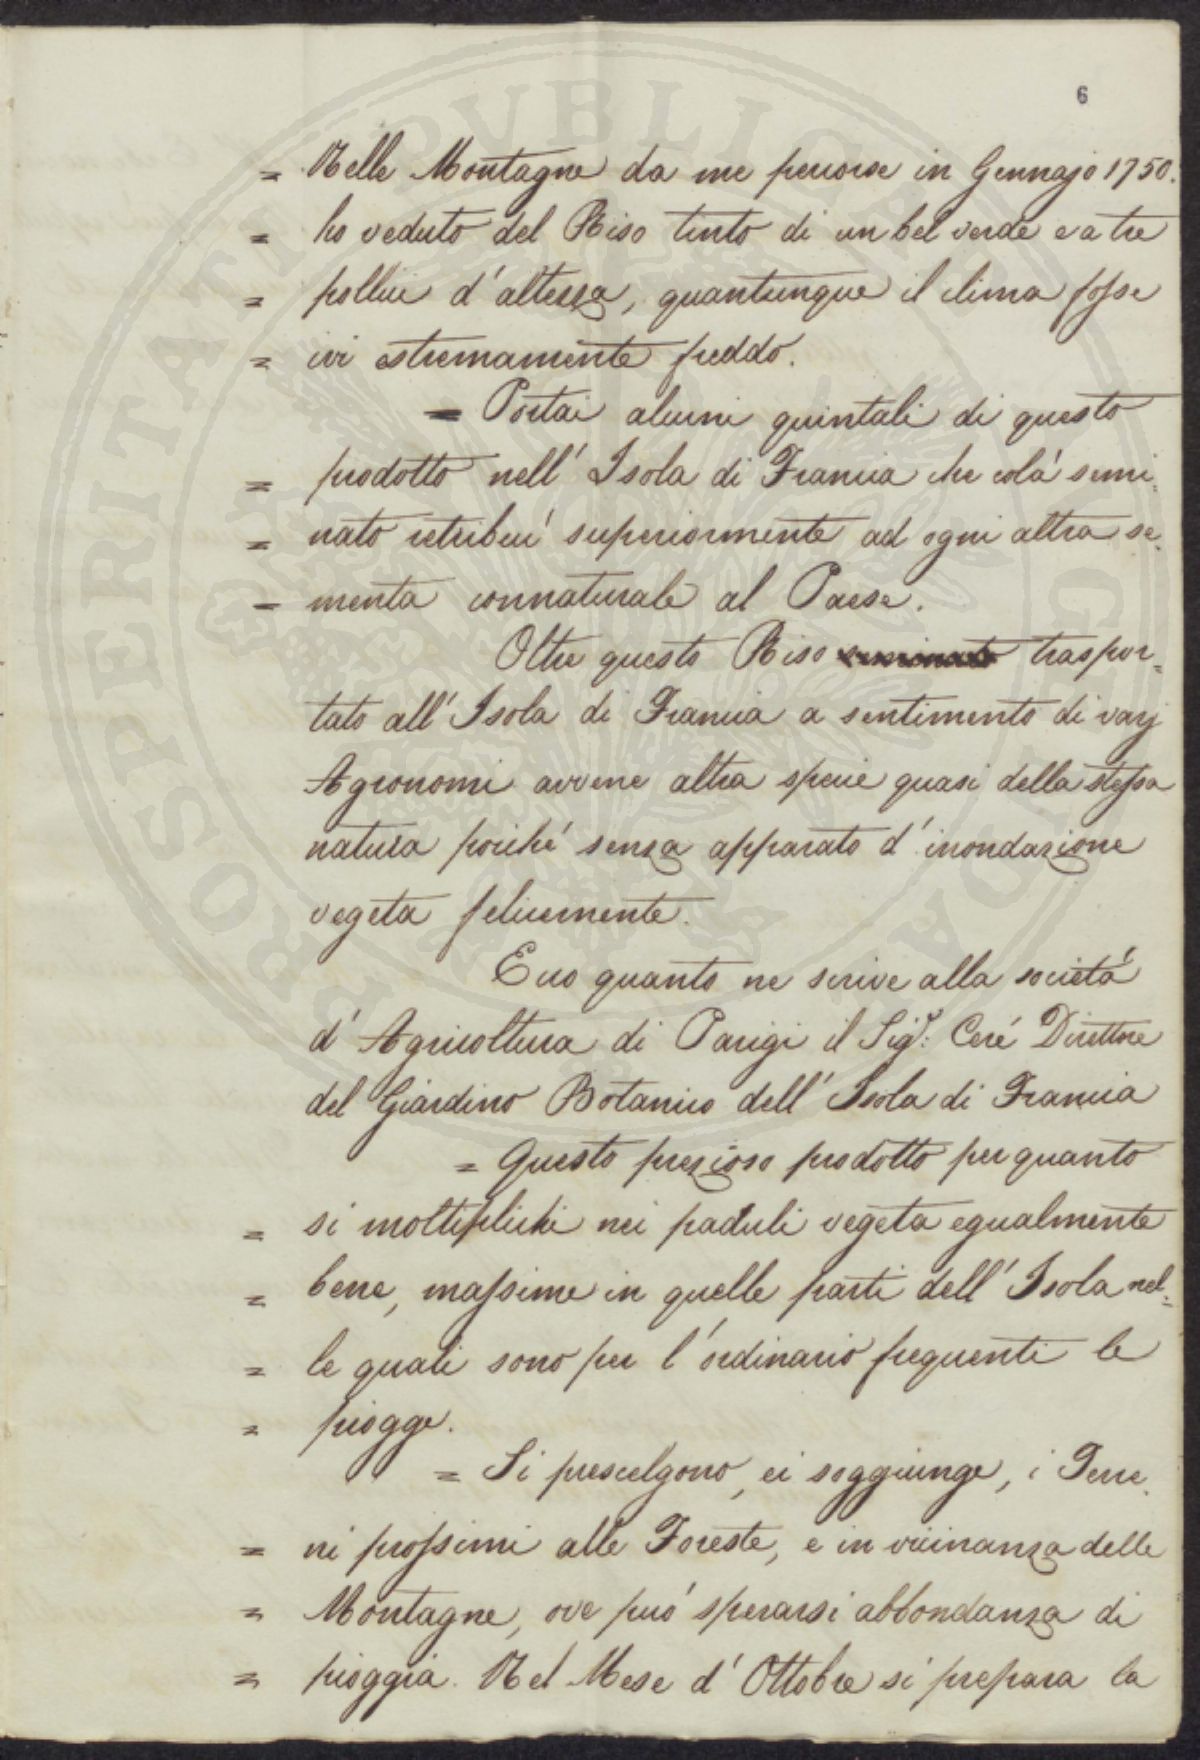 6
= Nelle Montagne da me percorse in Gennajo 1750.
= ho veduto del Riso tinto di un bel verde e a tre
= pollici d'altezza, quantunque il clima fosse
= ivi estremamente freddo.
= Portai alcuni quintali di questo
= prodotto nell'Isola di Francia che colá semi-
= nato retribuí superiormente ad ogni altra se-
= menta connaturale al Paese.
Oltre questo Riso traspor=
tato all'Isola di Francia a sentimento di varj
Agronomi avvene altra specie quasi della stessa
natura poiché senza apparato d'inondazione
vegeta felicemente.
Ecco quanto ne scrive alla societá
d'Agricoltura di Parigi il Sigr: Ceré Direttore
del Giardino Botanico dell'Isola di Francia
= Questo prezioso prodotto per quanto
= si moltiplichi nei paduli vegeta egualmente
= bene, massime in quelle parti dell'Isola nel=
= le quali sono per l'ordinario frequenti le
= piogge.
= Si prescelgono, ei soggiunge, i Terre-
= ni prossimi alle Foreste, e in vicinanza delle
= Montagne, ove puó sperarsi abbondanza di
= pioggia. Nel Mese d'Ottobre si prepara la
PROSPERITATI PVBLICAE AVGENDAE